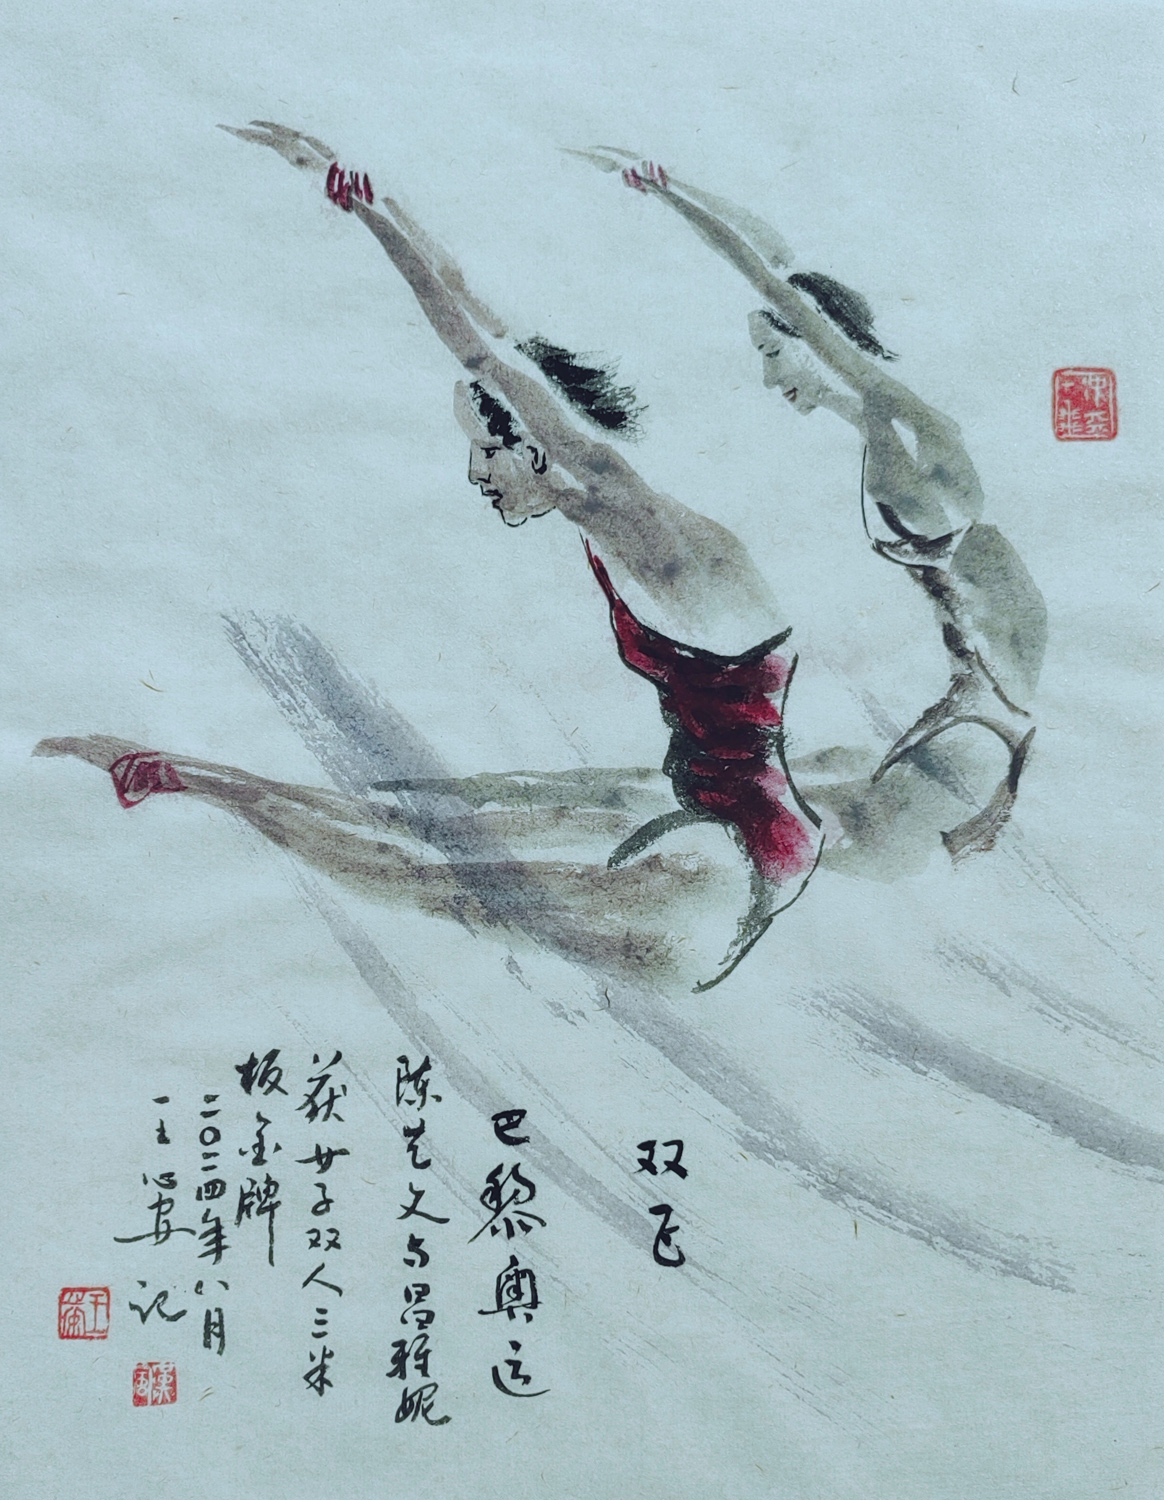 双飞
巴黎奥运
陈艺文与昌雅妮
获女子双人三米
板金牌
二〇二四年八月
王心安记